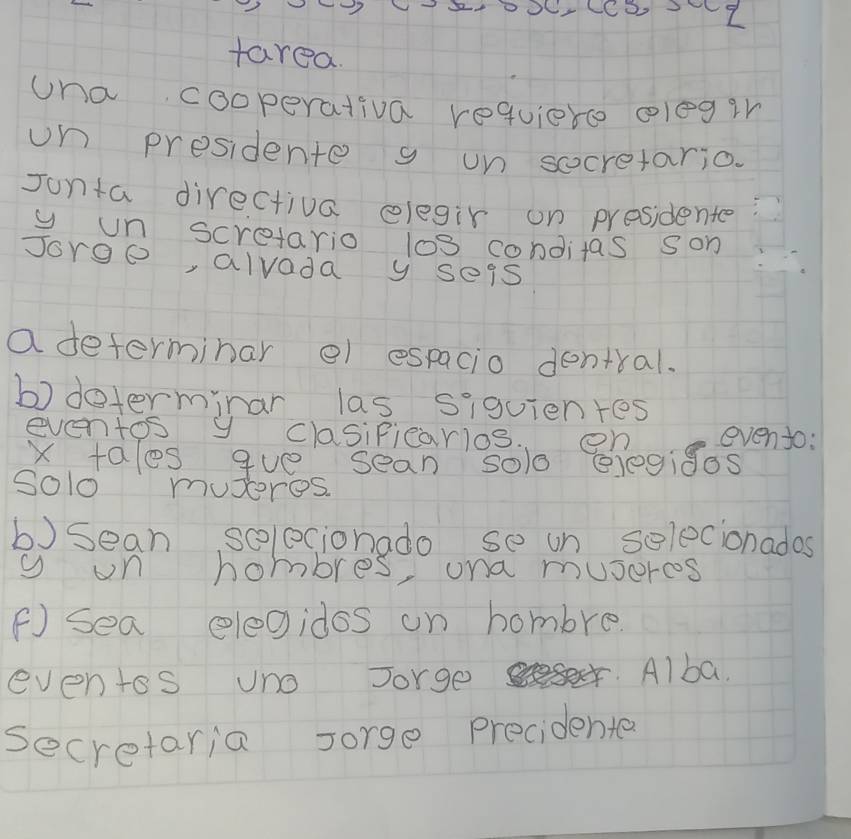 tarea.
una cooperativa requiere elegir
un presidente y un secretario.
Junta directiva elegir un presidente
y un scretario los conditas son
Jorge, alvada y seis
a determinar el espacio dentral.
b) determinar las siguientes
eventos y clasificarlos. en evento:
x tales que sean solo elegidos
solo muteres.
b) sean selecionado se un selecionados
y un hombres, una museres
F) Sea elegidos un hombre.
eventos uno Jorge Alba.
Secretaria Jorge precidente